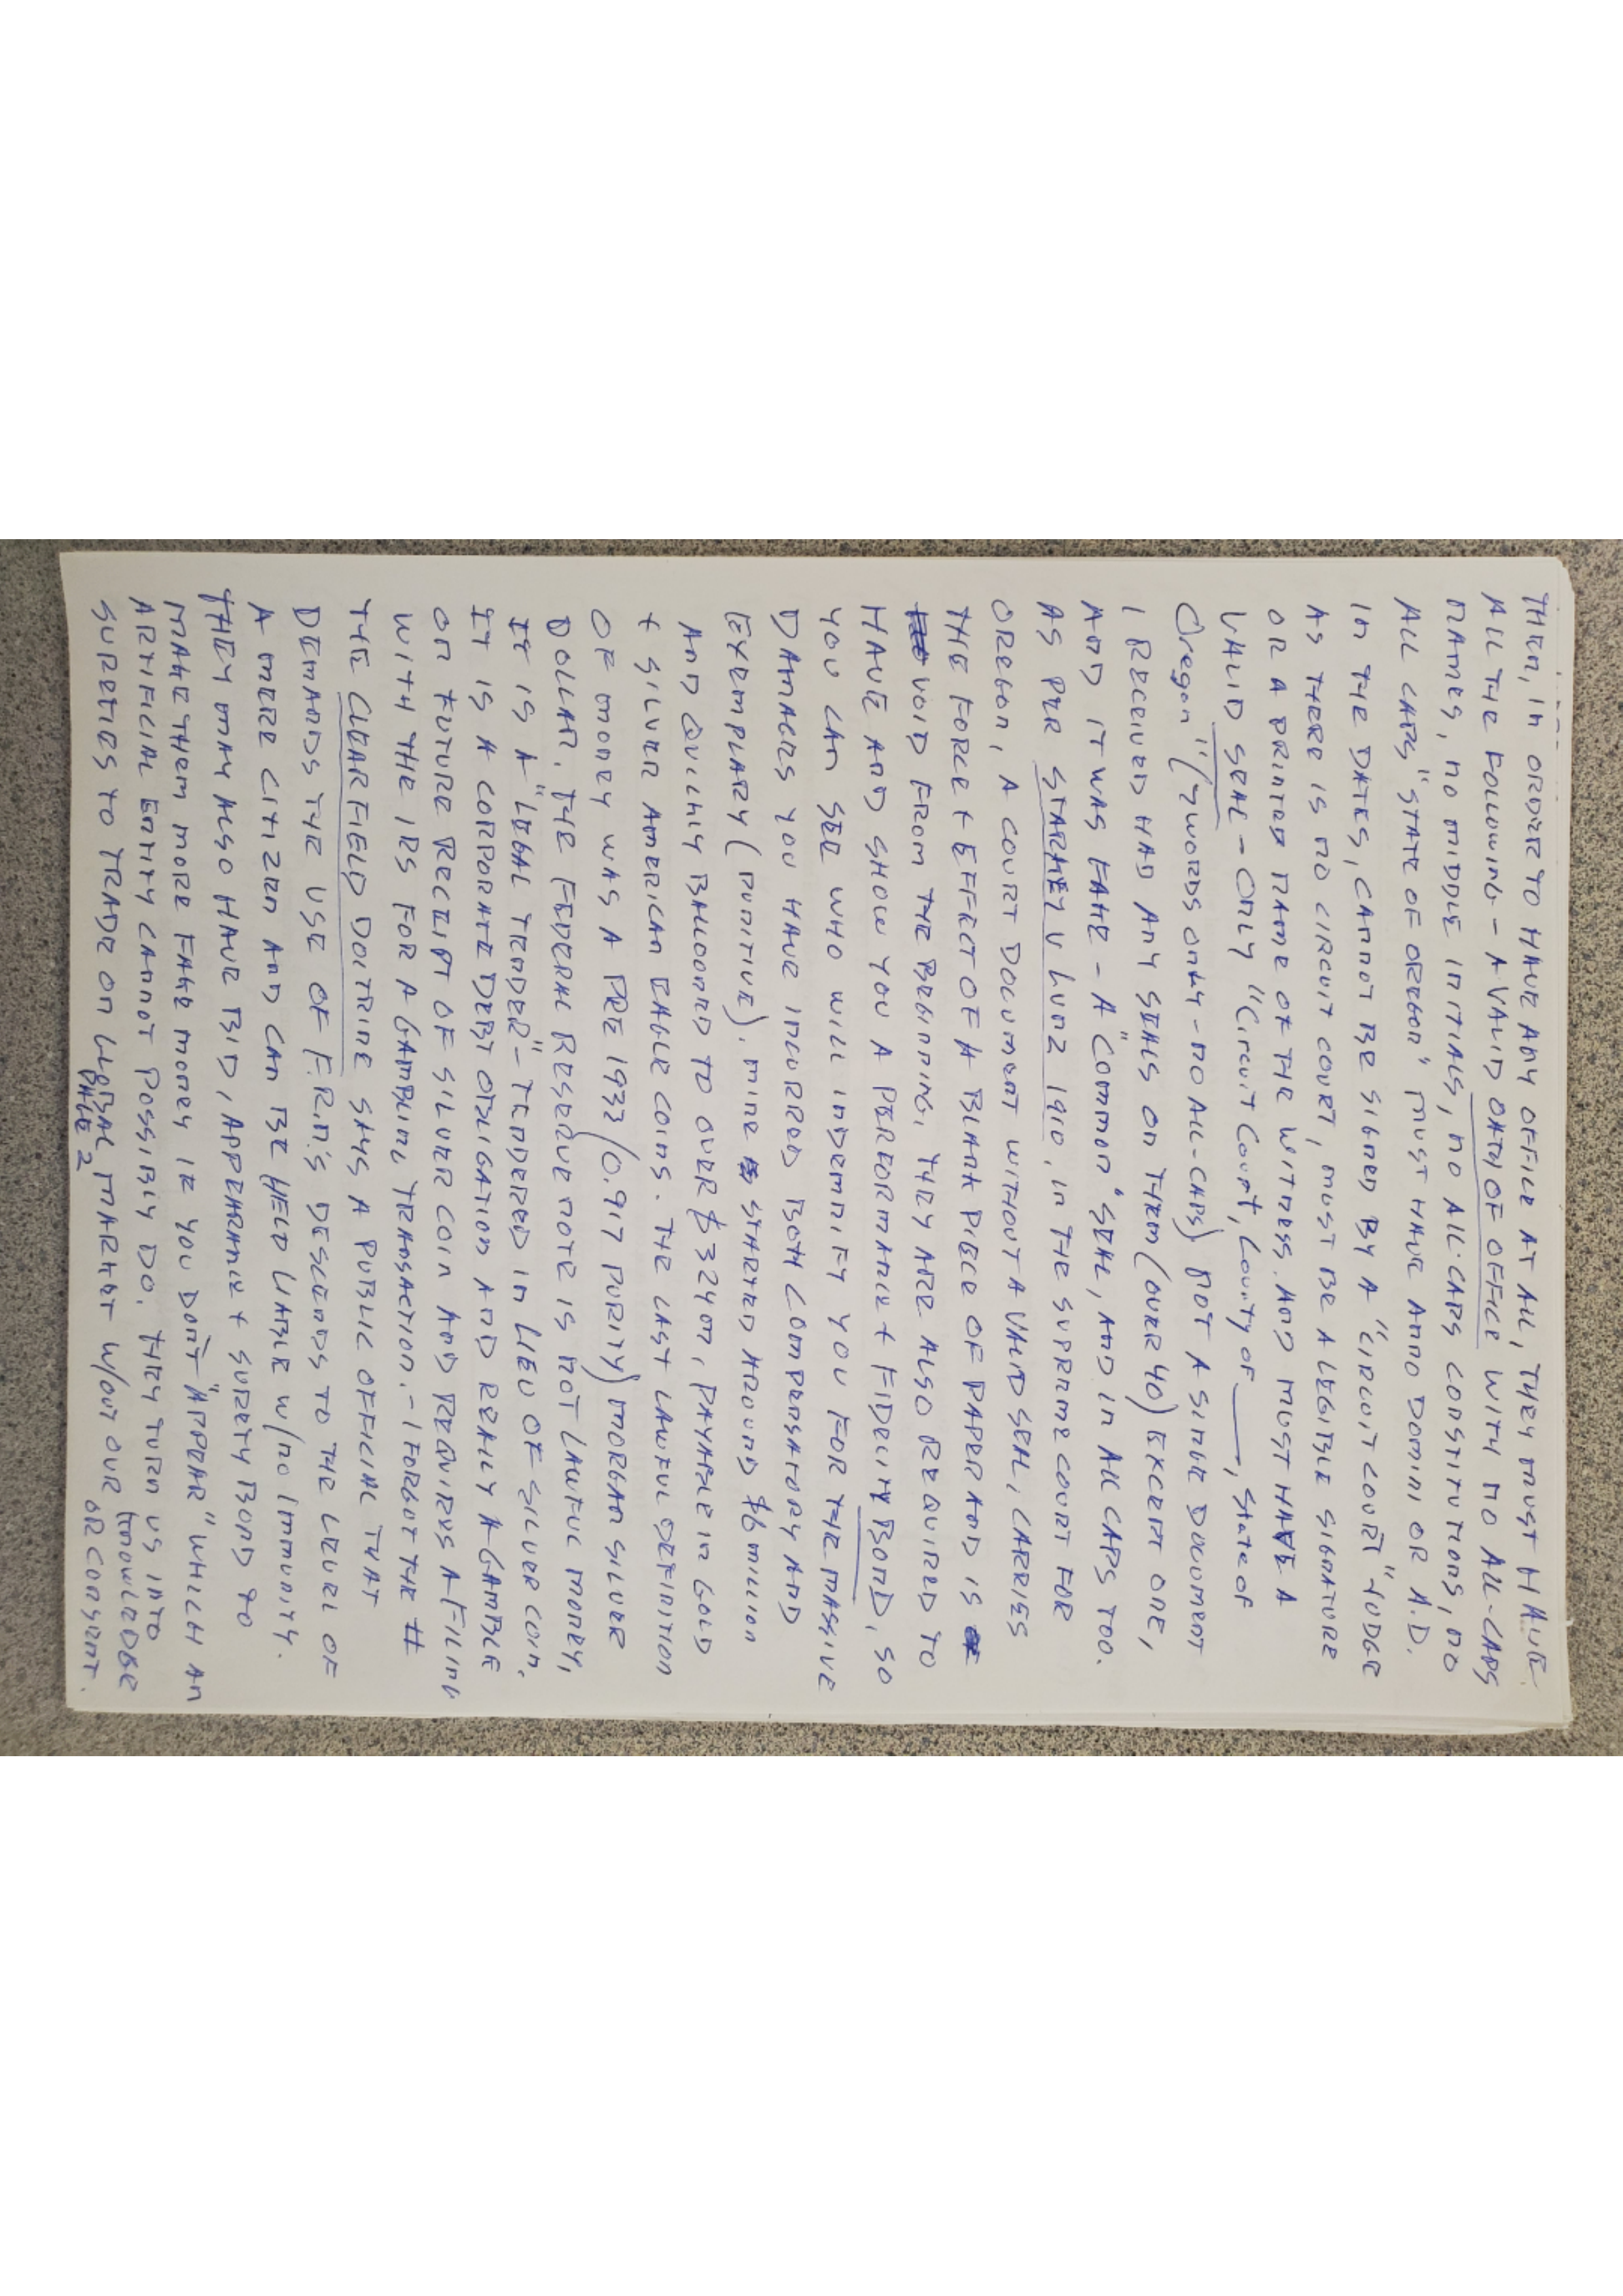 THEN, IN ORDER TO HAVE ANY OFFICE AT ALL, THEY MUST HAVE
ALL THE FOLLOWING - A VALID OATH OF OFFICE WITH NO ALL-CAPS
NAMES, NO MIDDLE INITIALS, NO ALL-CAPS CONSTITUTIONS, NO
ALL CAPS "STATE OF OREGON" MUST HAVE ANNO DOMINI OR A.D.
IN THE DATES, CANNOT BE SIGNED BY A "CIRCUIT COURT" JUDGE
AS THERE IS NO CIRCUIT COURT, MUST BE A LEGIBLE SIGNATURE
OR A PRINTED NAME OF THE WITNESS. AND MUST HAVE A
VALID SEAL - ONLY "Circuit Court, County of ____, State of
Oregon" (7 WORDS ONLY - NO ALL-CAPS) NOT A SINGLE DOCUMENT
I RECEIVED HAD ANY SEALS ON THEM (OVER 40) EXCEPT ONE,
AND IT WAS FAKE - A "COMMON" SEAL, AND IN ALL CAPS TOO.
AS PER STARKEY V LUNZ 1910, IN THE SUPREME COURT FOR
OREGON, A COURT DOCUMENT WITHOUT A VALID SEAL, CARRIES
THE FORCE + EFFECT OF A BLANK PIECE OF PAPER AND IS
VOID FROM THE BEGINNING, THEY ARE ALSO REQUIRED TO
HAVE AND SHOW YOU A PERFORMANCE + FIDELITY BOND, SO
YOU CAN SEE WHO WILL INDEMNIFY YOU FOR THE MASSIVE
DAMAGES YOU HAVE INCURRED BOTH COMPENSATORY AND
EXEMPLARY (PUNITIVE). MINE STARTED AROUND $6 MILLION
AND QUICKLY BALLOONED TO OVER $324M, PAYABLE IN GOLD
+ SILVER AMERICAN EAGLE COINS. THE LAST LAWFUL DEFINITION
OF MONEY WAS A PRE 1933 (0.917 PURITY) MORGAN SILVER
DOLLAR, THE FEDERAL RESERVE NOTE IS NOT LAWFUL MONEY,
IT IS A "LEGAL TENDER" - TENDERED IN LIEU OF SILVER COIN.
IT IS A CORPORATE DEBT OBLIGATION AND REALLY A GAMBLE
ON FUTURE RECEIPT OF SILVER COIN AND REQUIRES A FILING
WITH THE IRS FOR A GAMBLING TRANSACTION. - I FORGOT THE #
THE CLEARFIELD DOCTRINE SAYS A PUBLIC OFFICIAL THAT
DEMANDS THE USE OF F.R.N.'S DESCENDS TO THE LEVEL OF
A MERE CITIZEN AND CAN BE HELD LIABLE W/NO IMMUNITY.
THEY MAY ALSO HAVE BID, APPEARANCE + SURETY BOND TO
MAKE THEM MORE FAKE MONEY IF YOU DON'T "APPEAR" WHICH AN
ARTIFICIAL ENTITY CANNOT POSSIBLY DO. THEY TURN US INTO
SURETIES TO TRADE ON GLOBAL MARKET W/OUT OUR KNOWLEDGE
OR CONSENT.
PAGE 2